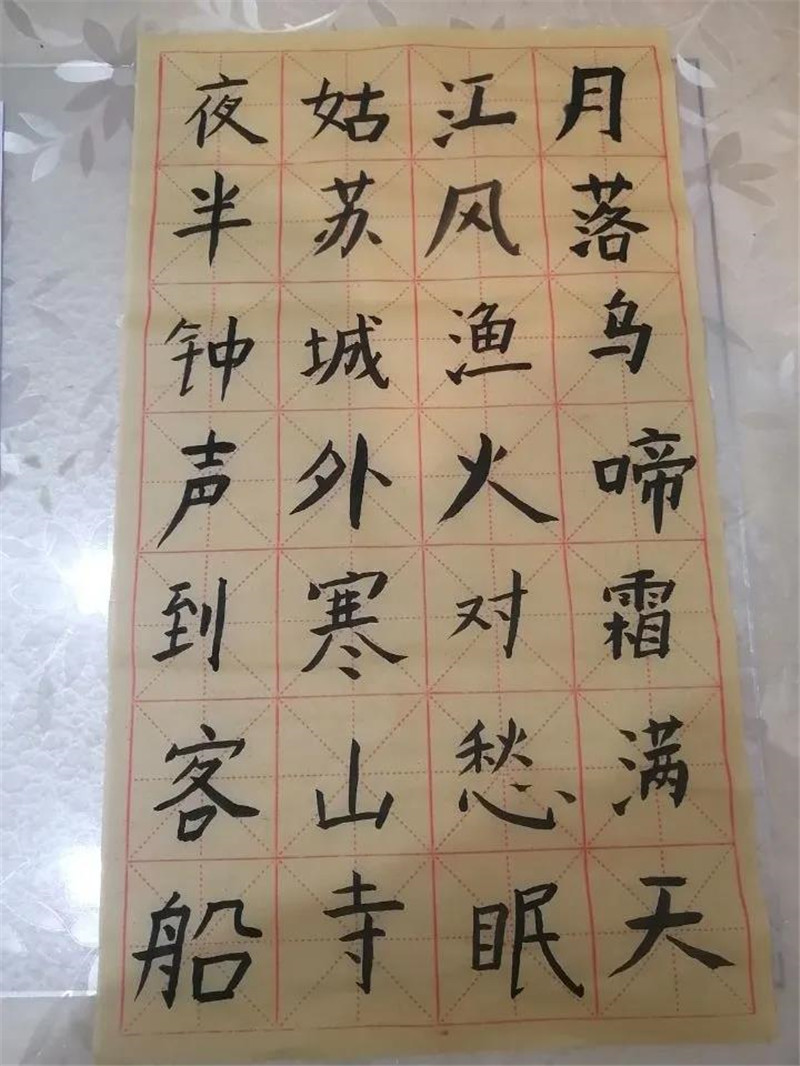 月落乌啼霜满天
江风渔火对愁眠
姑苏城外寒山寺
夜半钟声到客船